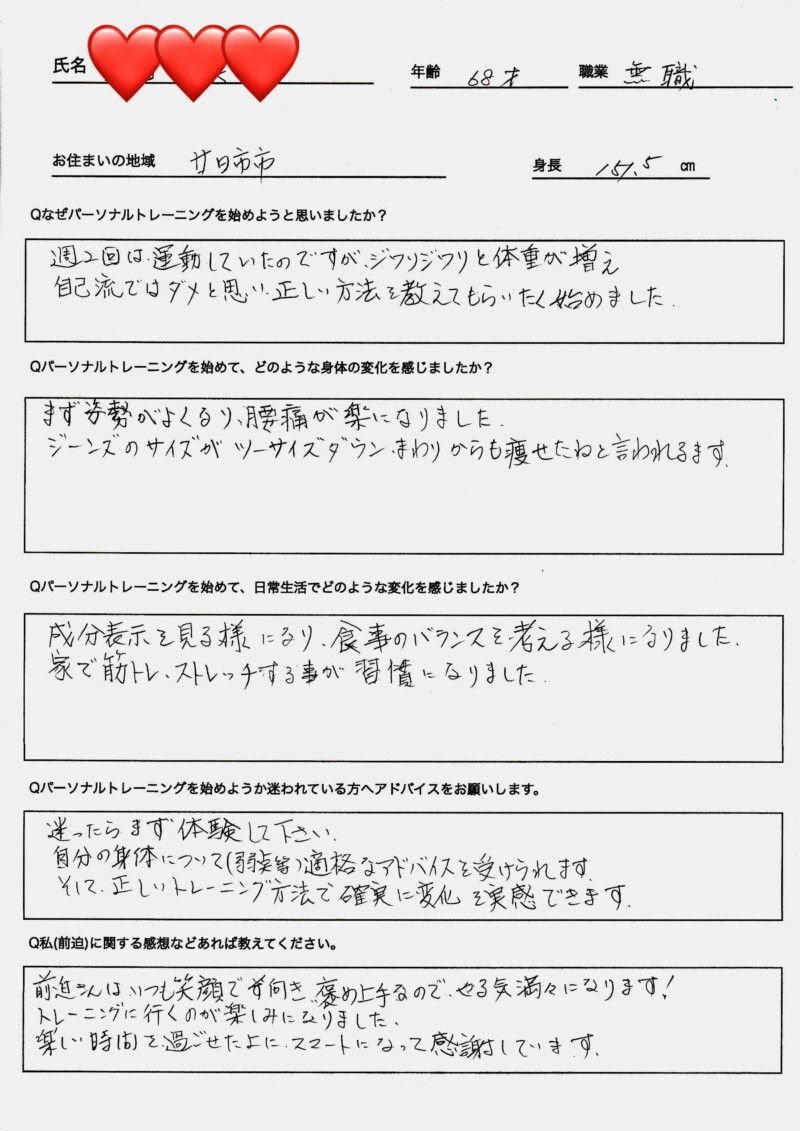 氏名
年齢 68才 職業 無職
お住まいの地域 廿日市市
身長 151.5 cm
Qなぜパーソナルトレーニングを始めようと思いましたか？
週2回は運動していたのですが、ジワリジワリと体重が増え
自己流ではダメと思い、正しい方法を教えてもらいたく始めました.
Qパーソナルトレーニングを始めて、どのような身体の変化を感じましたか？
まず姿勢がよくなり、腰痛が楽になりました.
ジーンズのサイズがツーサイズダウン、まわりからも痩せたねと言われるます.
Qパーソナルトレーニングを始めて、日常生活でどのような変化を感じましたか？
成分表示を見る様になり、食事のバランスを考える様になりました.
家で筋トレ、ストレッチする事が習慣になりました.
Qパーソナルトレーニングを始めようか迷われている方へアドバイスをお願いします。
迷ったらまず体験して下さい.
自分の身体について(弱点等)適格なアドバイスを受けられます.
そして、正しいトレーニング方法で確実に変化を実感できます.
Q私(前迫)に関する感想などあれば教えてください。
前迫さんはいつも笑顔で前向き、褒め上手なので、やる気満々になります!
トレーニングに行くのが楽しみになりました.
楽しい時間を過ごせた上に、スマートになって感謝しています.